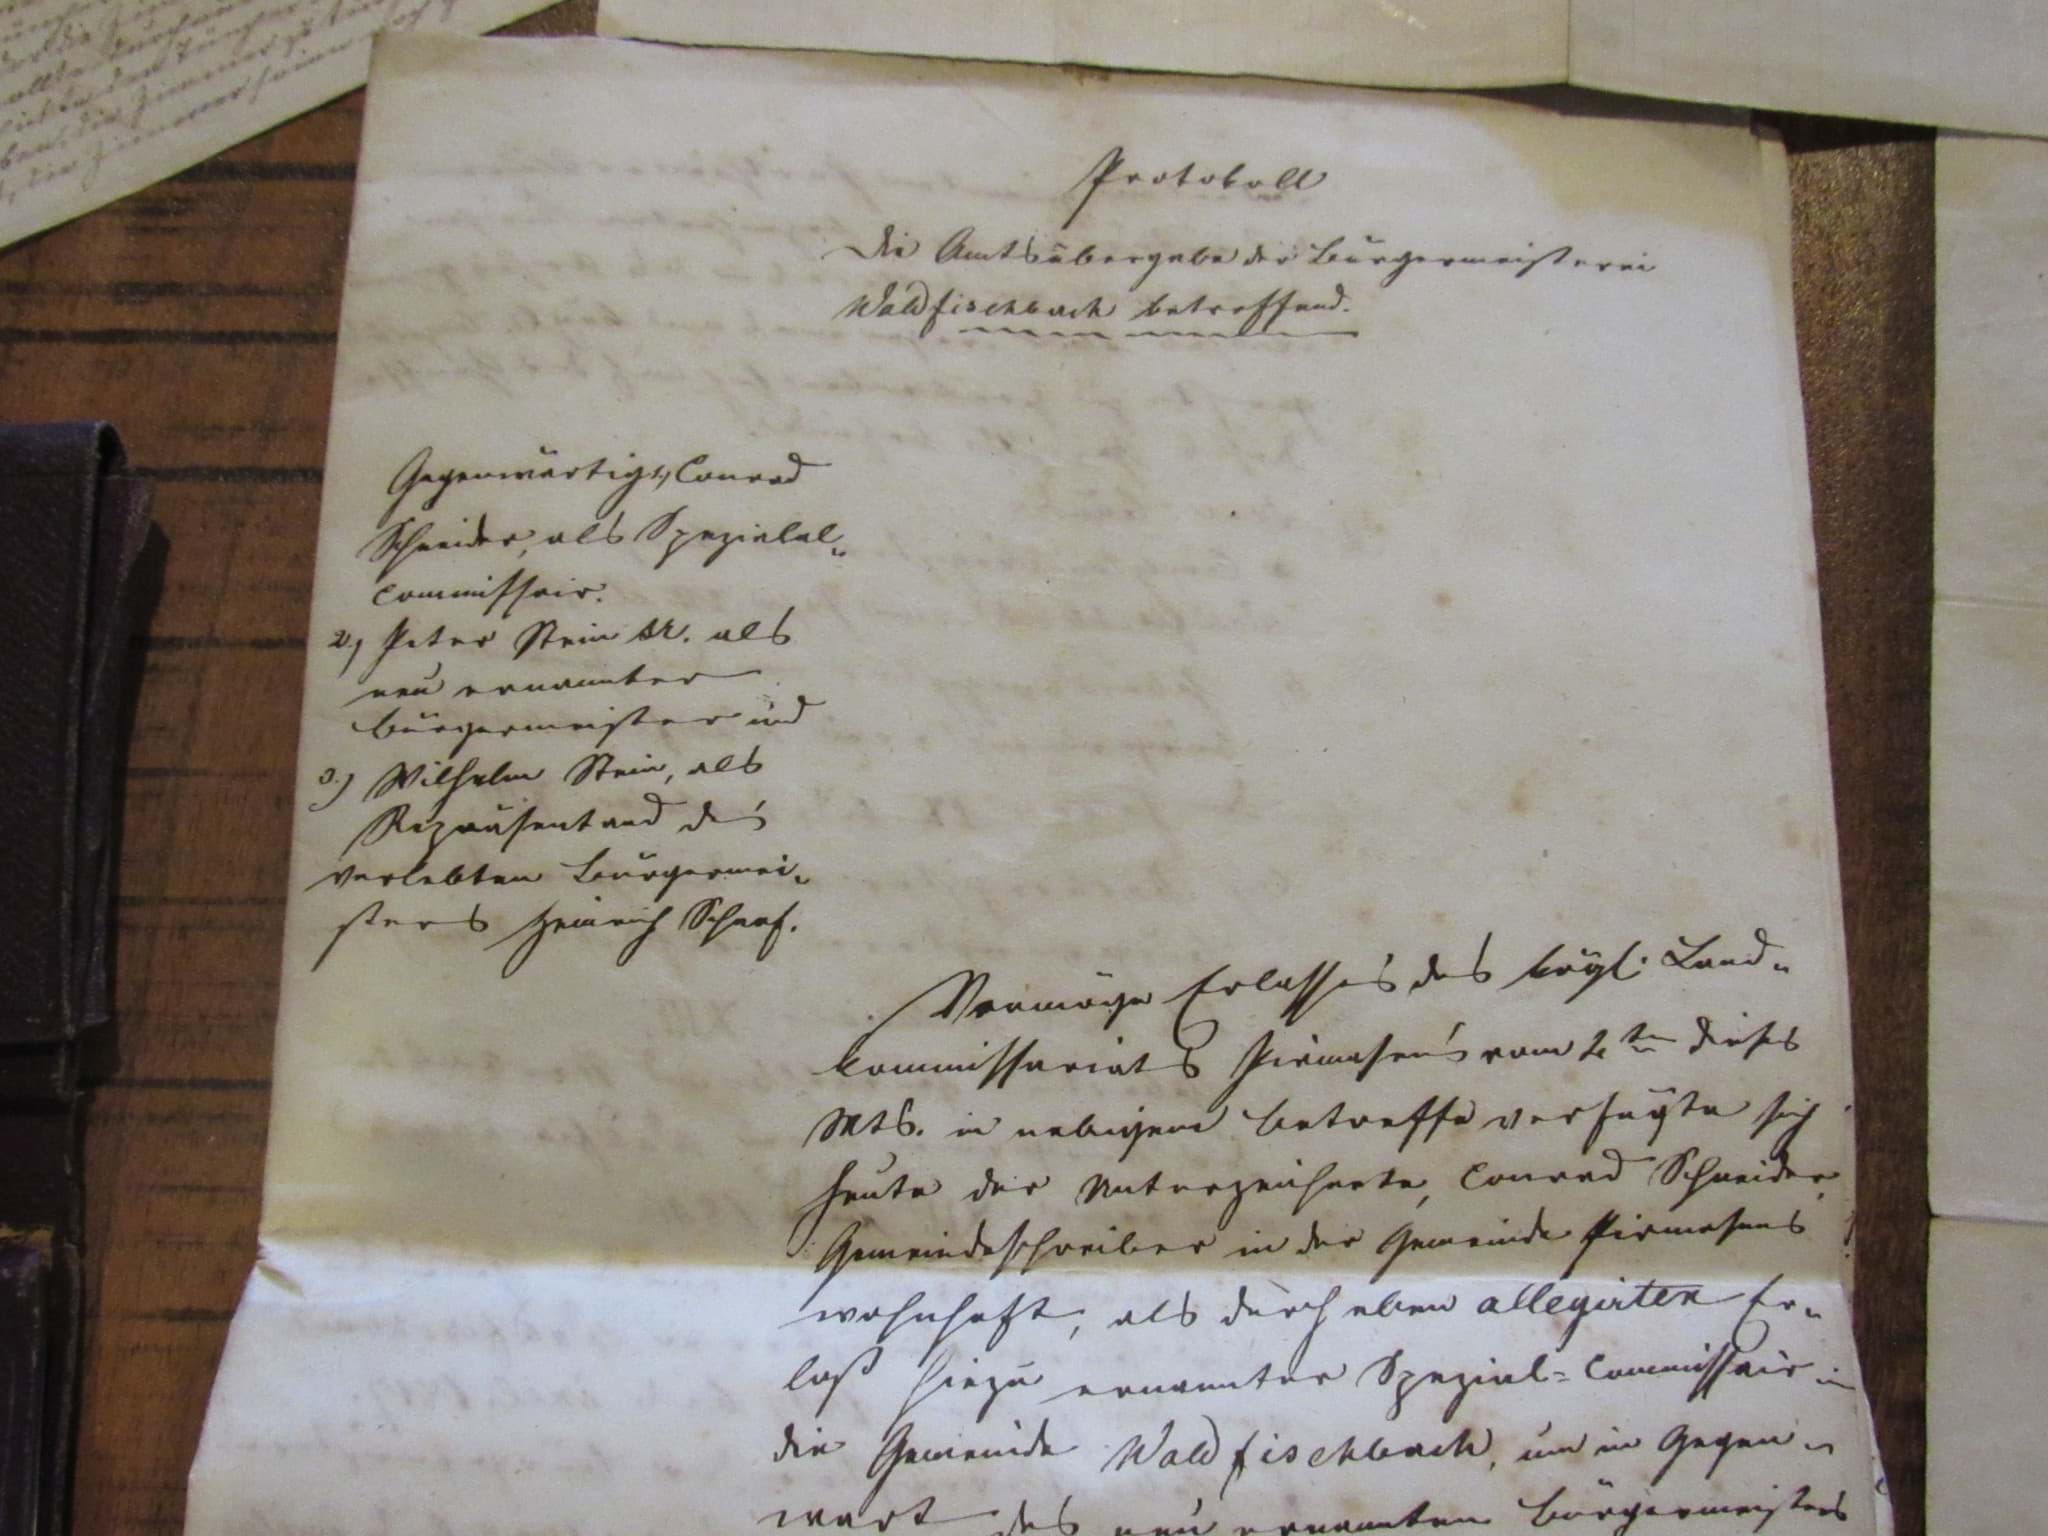 Protokoll
die Amtsübergabe der Bürgermeisterei
Waldfischbach betreffend.
Gegenwärtig 1,) Conrad
Schneider, als Spezialal-
Commissair.
2,) Peter Stein als
neu ernannter
Bürgermeister und
3.) Wilhelm Stein, als
Repräsentand des
verlebten Bürgermei-
sters Heinrich Scharf.
Vermöge Erlasses des königl: Land-
kommissariats Pirmasens vom 2ten dieses
Mts. in nebigem Betreffe verfügte sich
heute der Unterzeichnete, Conrad Schneider,
Gemeindeschreiber in der Gemeinde Pirmasens
wohnhaft, als durch eben allegirten Er-
laß hiezu ernannter Spezial-Commissair in
die Gemeinde Waldfischbach, um in Gegen-
wart des neu ernannten Bürgermeisters